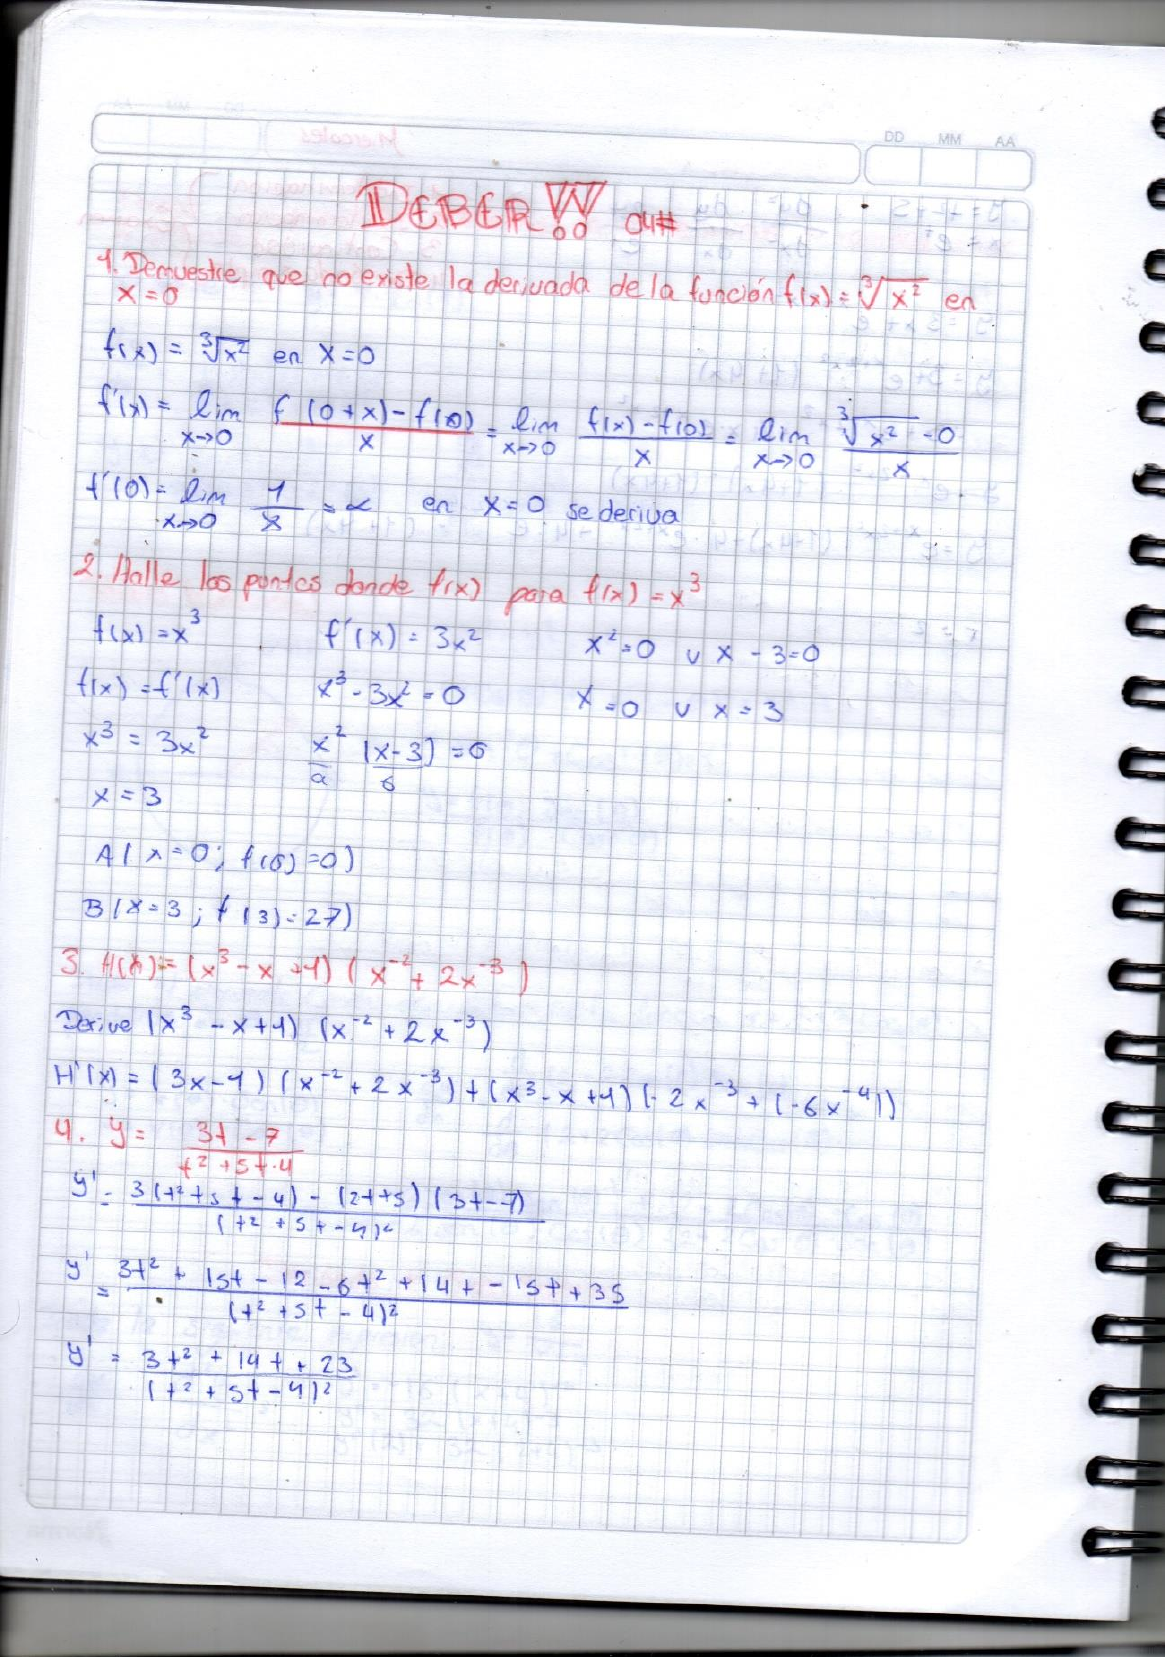 DD MM AA
DEBER!! 04#
1. Demuestre que no existe la derivada de la función f(x) = ∛x² en
x = 0
f(x) = ∛x² en x=0
f'(x) = lim x→0 (f(0+x) - f(0))/x = lim x→0 (f(x) - f(0))/x = lim x→0 (∛x² - 0)/x
f'(0) = lim x→0 1/x = ∝ en x=0 se deriva
2. Halle los puntos donde f(x) para f(x) = x³
f(x) = x³ f'(x) = 3x² x² = 0 v x - 3 = 0
f(x) = f'(x) x³ - 3x² = 0 x = 0 v x = 3
x³ = 3x² x² (x-3) = 0
a 6
x = 3
A(x=0; f(0)=0)
B(x=3; f(3)=27)
3. H(x) = (x³ - x + 1) (x⁻² + 2x⁻³)
Derive (x³ - x + 1) (x⁻² + 2x⁻³)
H'(x) = (3x - 1) (x⁻² + 2x⁻³) + (x³ - x + 1) (-2x⁻³ + (-6x⁻⁴))
4. y = (3t - 7)/(t² + 5t - 4)
y' = (3(t² + 5t - 4) - (2t + 5)(3t - 7))/(t² + 5t - 4)²
y' = (3t² + 15t - 12 - 6t² + 14t - 15t + 35)/(t² + 5t - 4)²
y' = (3t² + 14t + 23)/(t² + 5t - 4)²